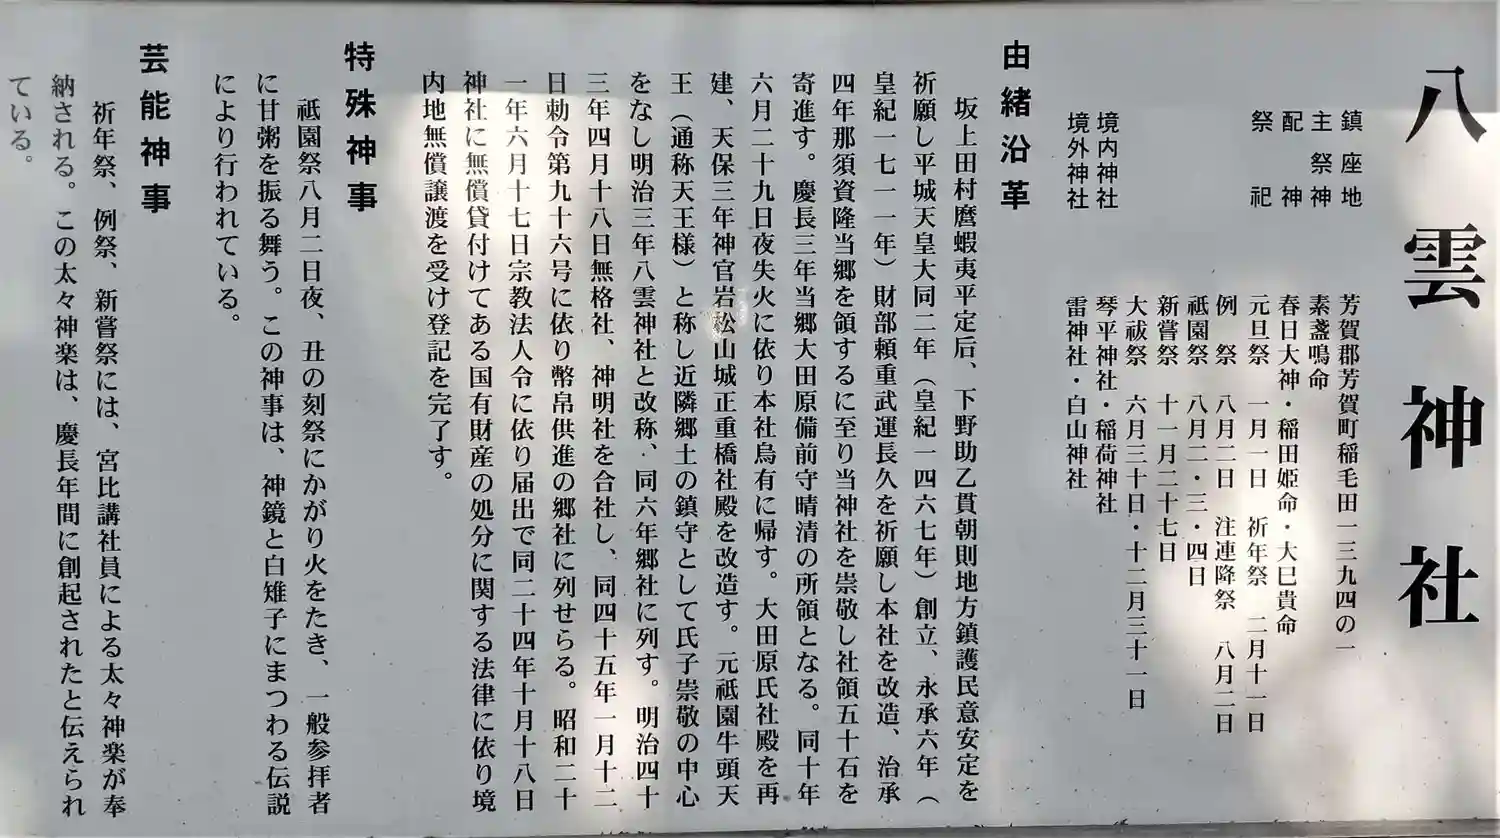 八雲神社
鎮座地　芳賀郡芳賀町稲毛田一三九四の一
主祭神　素盞鳴命
配神　春日大神・稲田姫命・大巳貴命
祭祀　元旦祭　一月一日　祈年祭　二月十一日
例祭　八月二日　注連降祭　八月二日
祗園祭　八月二・三・四日
新嘗祭　十一月二十七日
大祓祭　六月三十日・十二月三十一日
境内神社　琴平神社・稲荷神社
境外神社　雷神社・白山神社
由緒沿革
坂上田村麿蝦夷平定后、下野助乙貫朝則地方鎮護民意安定を
祈願し平城天皇大同二年（皇紀一四六七年）創立、永承六年（
皇紀一七一一年）財部頼重武運長久を祈願し本社を改造、治承
四年那須資隆当郷を領するに至り当神社を崇敬し社領五十石を
寄進す。慶長三年当郷大田原備前守晴清の所領となる。同十年
六月二十九日夜失火に依り本社烏有に帰す。大田原氏社殿を再
建、天保三年神官岩松山城正重橋社殿を改造す。元祗園牛頭天
王（通称天王様）と称し近隣郷土の鎮守として氏子崇敬の中心
をなし明治三年八雲神社と改称、同六年郷社に列す。明治四十
三年四月十八日無格社、神明社を合社し、同四十五年一月十二
日勅令第九十六号に依り幣帛供進の郷社に列せらる。昭和二十
一年六月十七日宗教法人令に依り届出で同二十四年十月十八日
神社に無償貸付けてある国有財産の処分に関する法律に依り境
内地無償譲渡を受け登記を完了す。
特殊神事
祗園祭八月二日夜、丑の刻祭にかがり火をたき、一般参拝者
に甘粥を振る舞う。この神事は、神鏡と白雉子にまつわる伝説
により行われている。
芸能神事
祈年祭、例祭、新嘗祭には、宮比講社員による太々神楽が奉
納される。この太々神楽は、慶長年間に創起されたと伝えられ
ている。